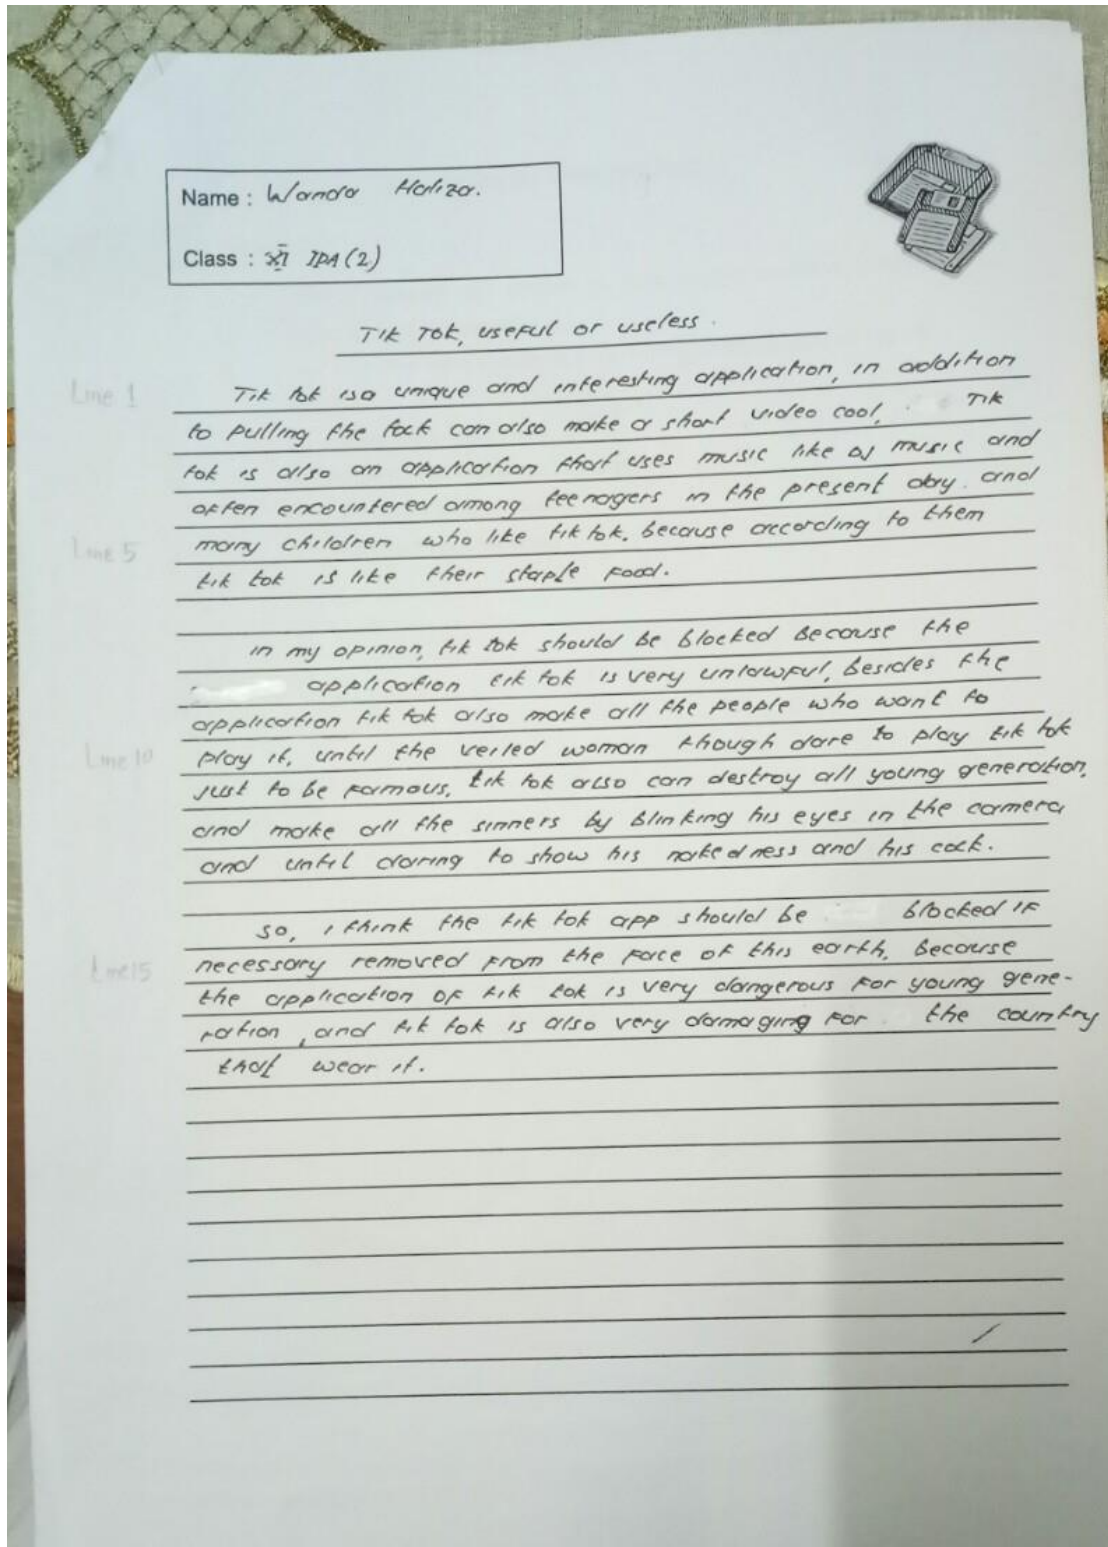 Name : Wanda Haliza.
Class : XI IPA (2)
Tik Tok, useful or useless.
Line 1
Tik tok is a unique and interesting application, in addition
to pulling the fack can also make a short video cool, Tik
tok is also an application that uses music like DJ music and
often encountered among teenagers in the present day. and
Line 5
many children who like tik tok. because according to them
tik tok is like their staple food.
in my opinion, tik tok should be blocked because the
application tik tok is very unlawful, besides the
application tik tok also make all the people who want to
Line 10
play it, until the veiled woman though dare to play tik tok
just to be famous, tik tok also can destroy all young generation,
and make all the sinners by blinking his eyes in the camera
and until daring to show his nakedness and his cock.
so, i think the tik tok app should be blocked if
Line 15
necessary removed from the face of this earth, because
the application of tik tok is very dangerous for young gene-
ration, and tik tok is also very damaging for the country
that wear it.